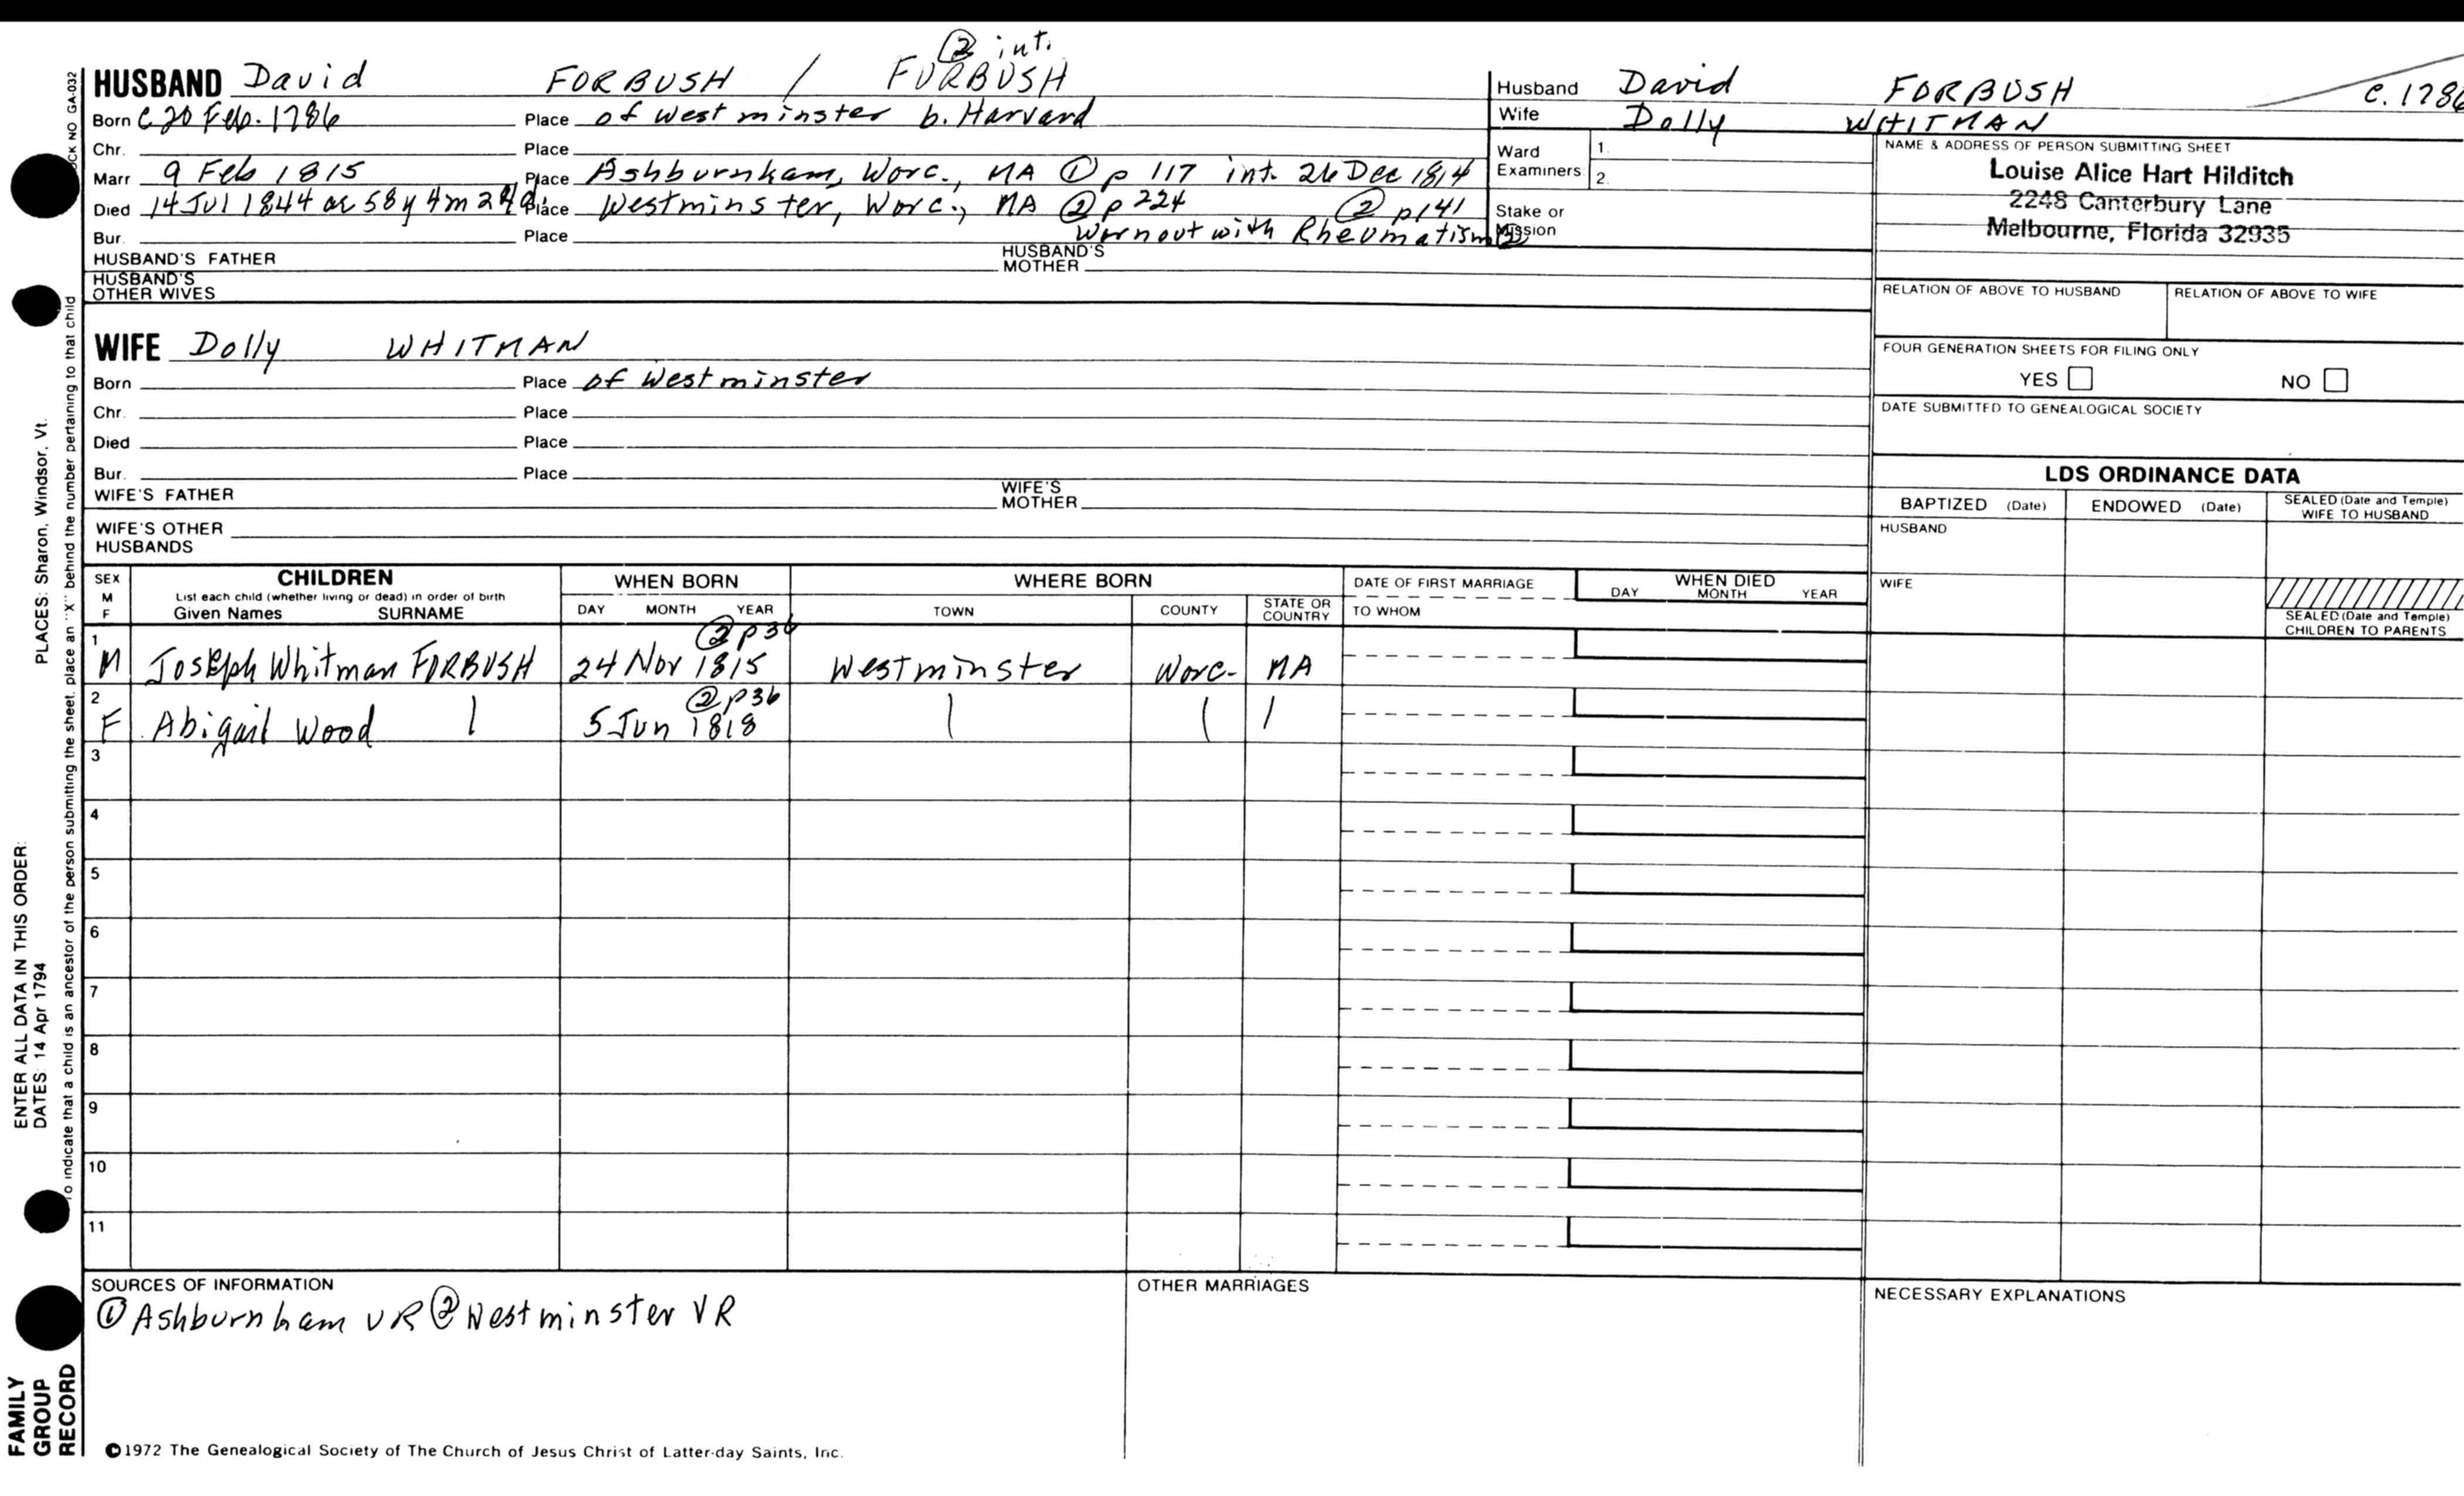 ② int.
HUSBAND David FORBUSH / FURBUSH
Born c 20 Feb. 1786 Place of Westminster b. Harvard
Chr. Place
Marr 9 Feb 1815 Place Ashburnham, Worc., MA ① p 117 int. 26 Dec 1814
Died 14 Jul 1844 ae 58y 4m 24d. Place Westminster, Worc., MA ② p 224 ② p141
Bur. Place Wornout with Rheumatism ②
HUSBAND'S FATHER HUSBAND'S MOTHER
HUSBAND'S OTHER WIVES
WIFE Dolly WHITMAN
Born Place of Westminster
Chr. Place
Died Place
Bur. Place
WIFE'S FATHER WIFE'S MOTHER
WIFE'S OTHER HUSBANDS
Husband David FORBUSH c. 1786
Wife Dolly WHITMAN
Ward 1.
Examiners: 2.
Stake or
Mission
NAME & ADDRESS OF PERSON SUBMITTING SHEET
Louise Alice Hart Hilditch
2248 Canterbury Lane
Melbourne, Florida 32935
RELATION OF ABOVE TO HUSBAND RELATION OF ABOVE TO WIFE
FOUR GENERATION SHEETS FOR FILING ONLY
YES NO
DATE SUBMITTED TO GENEALOGICAL SOCIETY
LDS ORDINANCE DATA
BAPTIZED (Date) ENDOWED (Date) SEALED (Date and Temple) WIFE TO HUSBAND
HUSBAND
WIFE
SEALED (Date and Temple)
CHILDREN TO PARENTS
SEX M F CHILDREN WHEN BORN WHERE BORN DATE OF FIRST MARRIAGE WHEN DIED
List each child (whether living or dead) in order of birth
Given Names SURNAME DAY MONTH YEAR TOWN COUNTY STATE OR COUNTRY TO WHOM DAY MONTH YEAR
② p36
1 M Joseph Whitman FORBUSH 24 Nov 1815 Westminster Worc. MA
② p36
2 F Abigail Wood | 5 Jun 1818 | | |
3
4
5
6
7
8
9
10
11
SOURCES OF INFORMATION
① Ashburnham VR ② Westminster VR
OTHER MARRIAGES
NECESSARY EXPLANATIONS
©1972 The Genealogical Society of The Church of Jesus Christ of Latter-day Saints, Inc.
FAMILY
GROUP
RECORD
ENTER ALL DATA IN THIS ORDER:
DATES: 14 Apr 1794
PLACES: Sharon, Windsor, Vt.
To indicate that a child is an ancestor of the person submitting the sheet, place an "X" behind the number pertaining to that child
NO GA-032